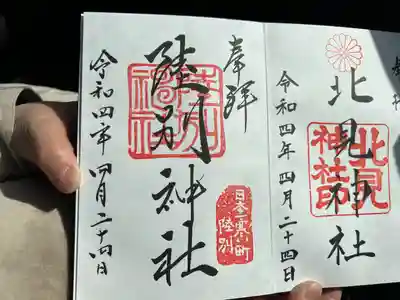 奉拝
北見神社
北見神社印
令和四年四月二十四日
奉拝
陸別神社
日本一寒い町
陸別
令和四年四月二十四日